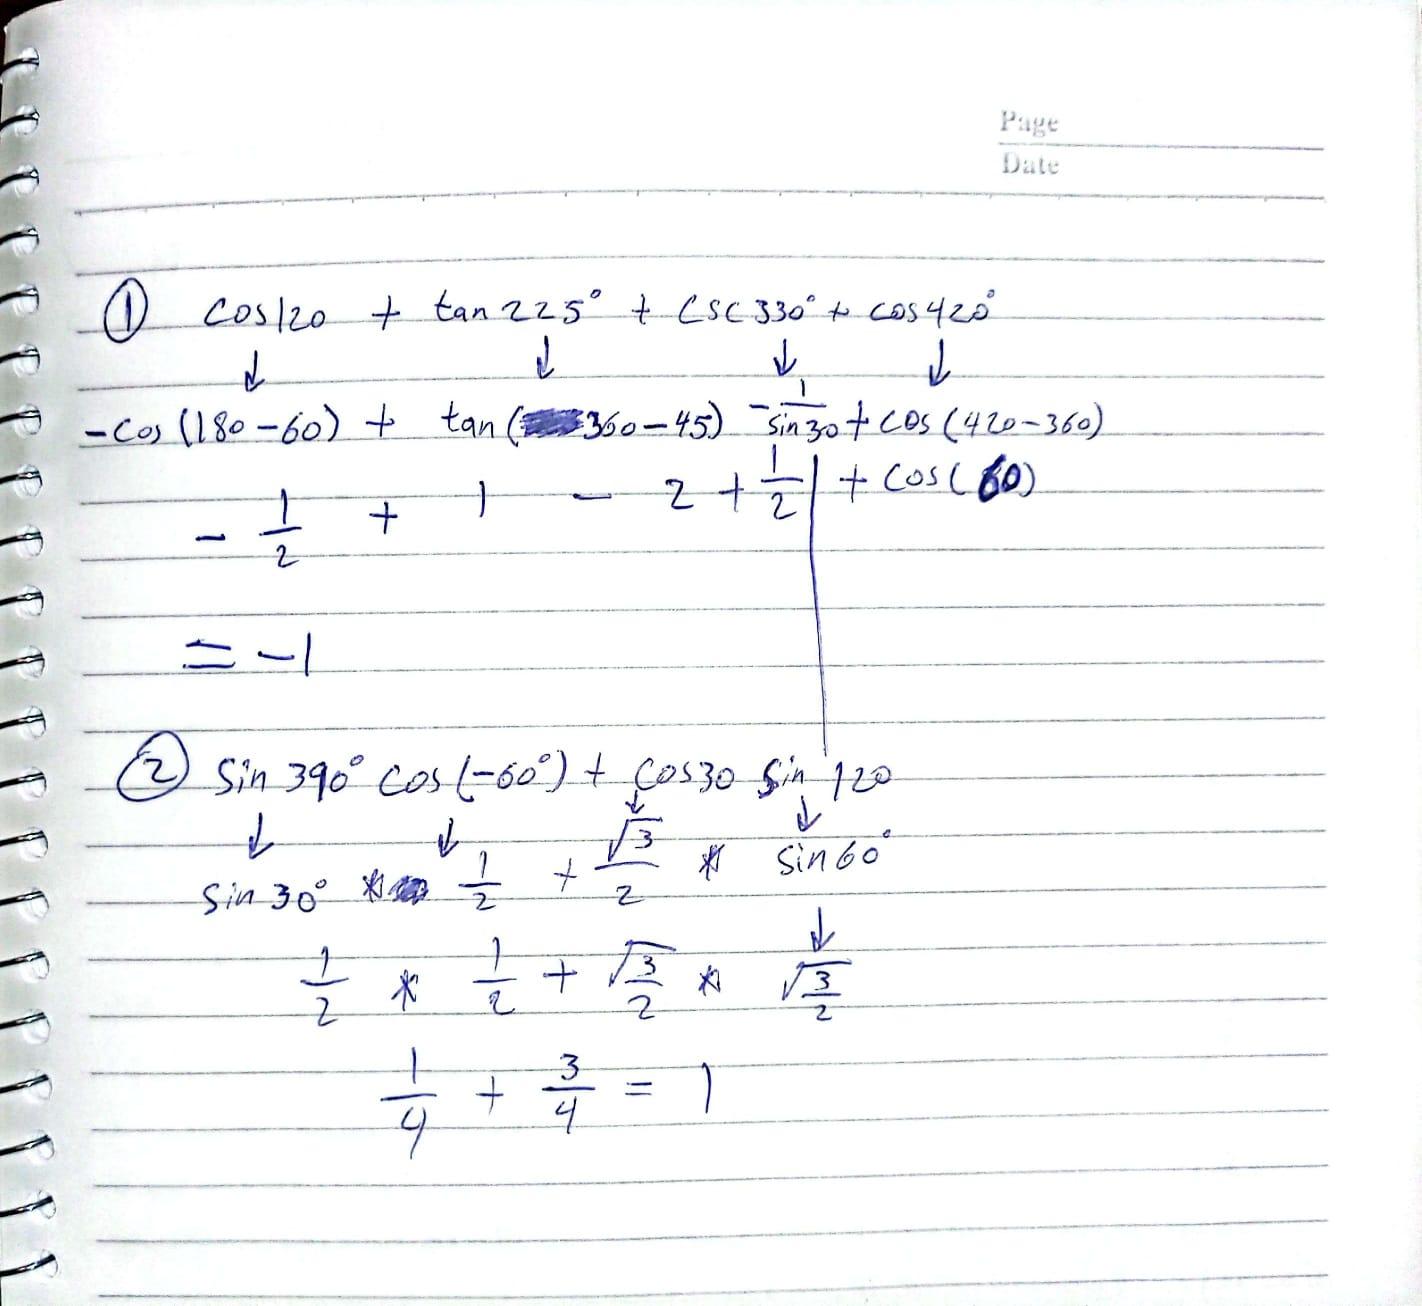 Page
Date
① cos120 + tan 225° + csc 330° + cos 420°
↓ ↓ ↓ ↓
-cos (180-60) + tan (360-45) -1/sin30 + cos (420-360)
- 1/2 + 1 - 2 + 1/2 | + cos(60)
= -1
② Sin 390° cos (-60°) + cos30 sin 120
↓ ↓ ↓ ↓
Sin 30° * 1/2 + √3/2 * Sin 60°
↓
1/2 * 1/2 + √3/2 * √3/2
1/4 + 3/4 = 1